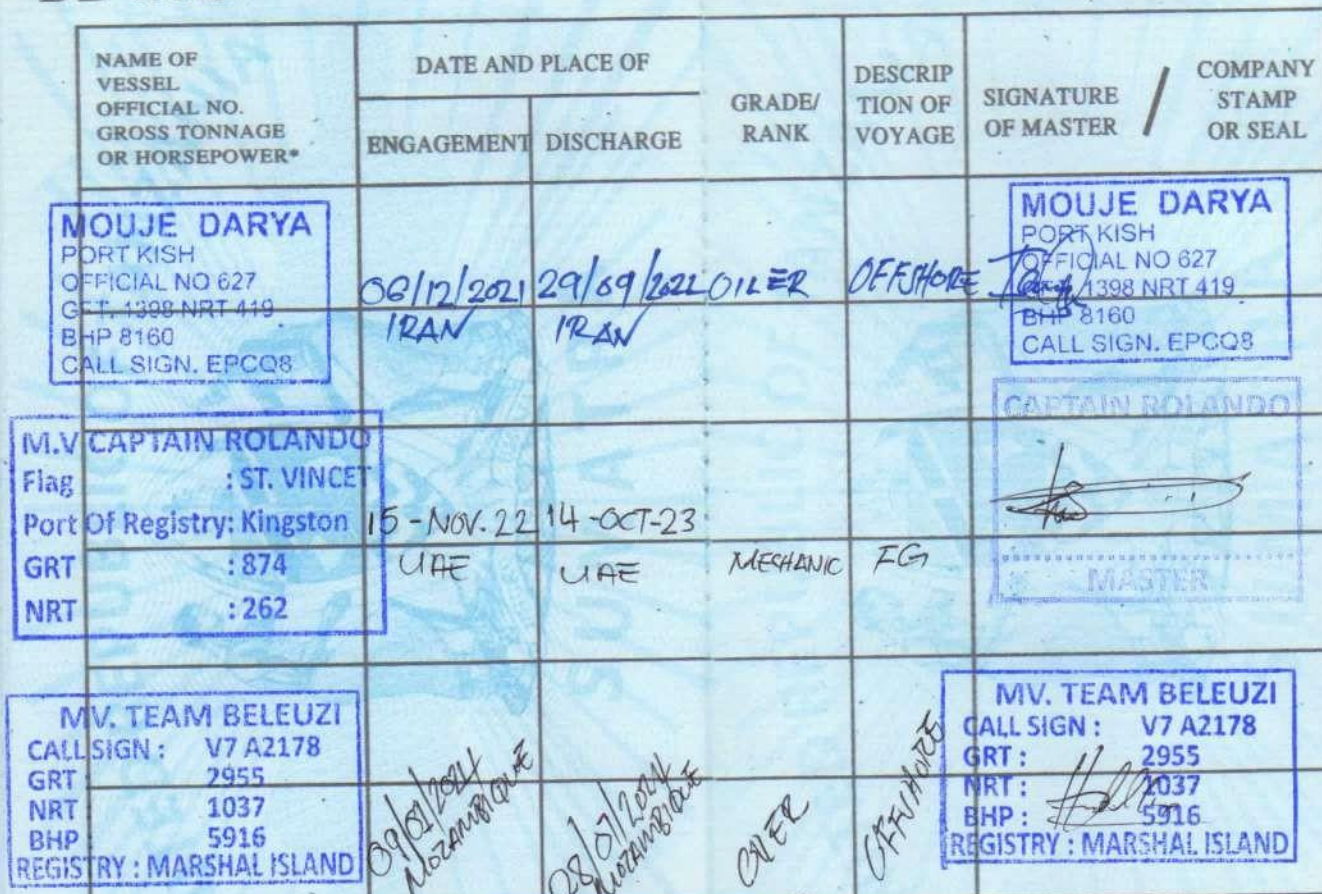 NAME OF
VESSEL
OFFICIAL NO.
GROSS TONNAGE
OR HORSEPOWER*
DATE AND PLACE OF
ENGAGEMENT
DISCHARGE
GRADE/
RANK
DESCRIP
TION OF
VOYAGE
SIGNATURE
OF MASTER
/
COMPANY
STAMP
OR SEAL
MOUJE DARYA
PORT KISH
OFFICIAL NO 627
GRT. 1398 NRT 419
BHP 8160
CALL SIGN. EPCQ8
06/12/2021
IRAN
29/09/2022
IRAN
OILER
OFFSHORE
MOUJE DARYA
PORT KISH
OFFICIAL NO 627
1398 NRT 419
BHP 8160
CALL SIGN. EPCQ8
M.V CAPTAIN ROLANDO
Flag : ST. VINCET
Port Of Registry: Kingston
GRT : 874
NRT : 262
15-NOV.22
UAE
14-OCT-23
UAE
MECHANIC
FG
CAPTAIN ROLANDO
MASTER
MV. TEAM BELEUZI
CALL SIGN : V7 A2178
GRT 2955
NRT 1037
BHP 5916
REGISTRY : MARSHAL ISLAND
09/01/2024
MOZAMBIQUE
08/07/2024
MOZAMBIQUE
OILER
OFFSHORE
MV. TEAM BELEUZI
CALL SIGN : V7 A2178
GRT : 2955
NRT : 1037
BHP : 5916
REGISTRY : MARSHAL ISLAND